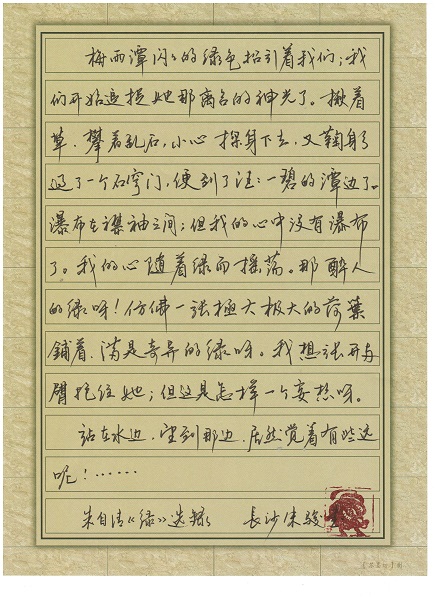 梅雨潭闪闪的绿色招引着我们；我
们开始追捉她那离合的神光了。揪着
草、攀着乱石，小心探身下去，又鞠躬
过了一个石穹门，便到了汪汪一碧的潭边了。
瀑布在襟袖之间；但我的心中没有瀑布
了。我的心随着绿而摇荡。那醉人
的绿呀！仿佛一张極大极大的荷葉
鋪着、满是奇异的绿呀。我想张开两
臂抱住她；但这是怎样一个妄想呀。
站在水边、望到那边、居然觉着有些远
呢！……
朱自清《绿》选錄 長沙朱骏